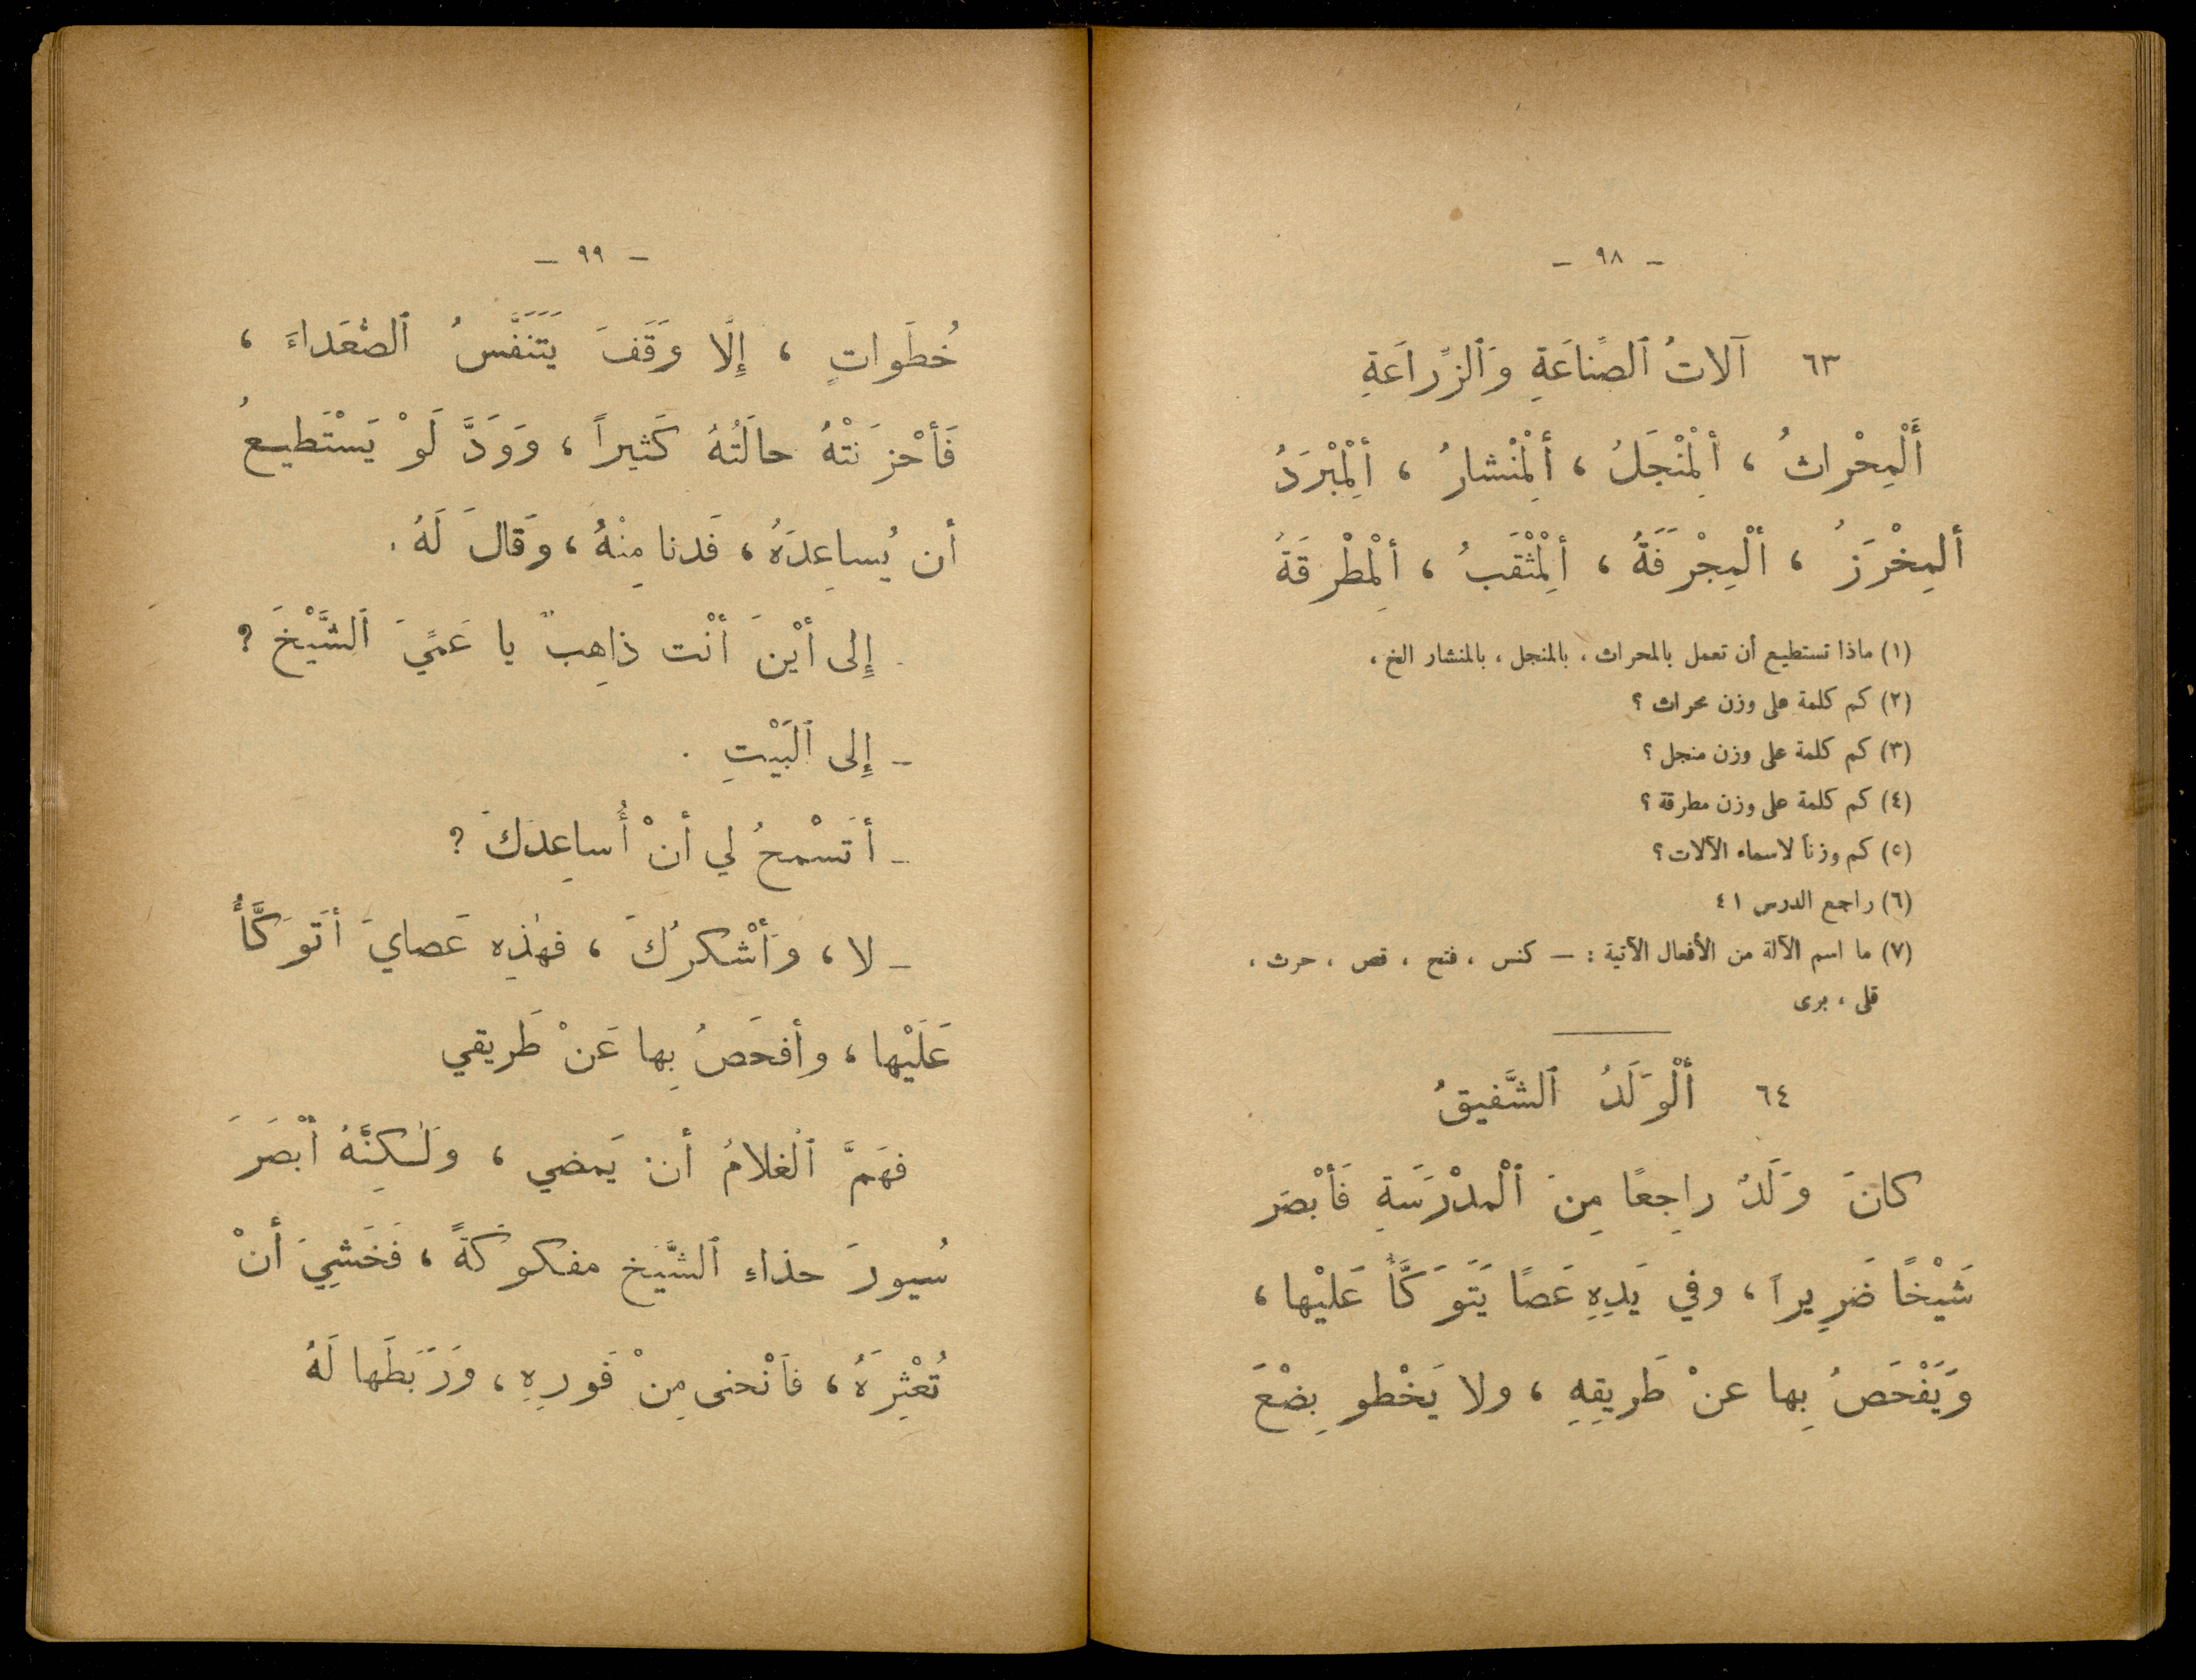 - ٩٨ -
٦٣ آلاتُ ٱلصِّناعَةِ وَٱلزِّراعَةِ
أَلْمِحْراثُ ، ألْمِنْجَلُ ، ألْمِنْشارُ ، ألْمِبْرَدُ
ألمِخْرَزُ ، ألْمِجْرَفَةُ ، ألْمِثْقَبُ ، ألْمِطْرقَةُ
(١) ماذا تستطيع أن تعمل بالمحراث ، بالمنجل ، بالمنشار الخ ،
(٢) كم كلمة على وزن محراث ؟
(٣) كم كلمة على وزن منجل ؟
(٤) كم كلمة على وزن مطرقة ؟
(٥) كم وزناً لاسماء الآلات ؟
(٦) راجع الدرس ٤١
(٧) ما اسم الآلة من الأفعال الآتية : — كنس ، فتح ، قص ، حرث ،
قلى ، برى
٦٤ ألْوَلَدُ ٱلشَّفيقُ
كانَ وَلَدٌ راجِعًا مِنَ ٱلْمدْرَسَةِ فَأبْصَر
شَيْخًا ضَريراً ، وفي يَدِهِ عَصًا يَتَوَكَّأُ عَليْها ،
وَيَفْحَصُ بِها عنْ طَريقِهِ ، ولا يَخْطو بِضْعَ
- ٩٩ -
خُطَواتٍ ، إِلَّا وَقَفَ يَتَنَفَّسُ ٱلصُّعَداءَ ،
فَأحْزَنَتْهُ حالَتُهُ كَثيراً ، وَوَدَّ لَوْ يَسْتَطيعُ
أن يُساعِدَهُ ، فَدنا مِنْهُ ، وَقالَ لَهُ .
. إِلى أيْنَ أنْت ذاهِبٌ يا عَمِّيَ ٱلشَّيْخَ ؟
- إِلى ٱلْبَيْتِ .
- أتَسْمحُ لي أنْ أُساعِدَكَ ؟
- لا ، وَأشْكرُكَ ، فهٰذِه عَصايَ أتَوَكَّأُ
عَلَيْها ، وأفحَصُ بِها عَنْ طَريقي
فهَمَّ ٱلْغلامُ أن يَمضي ، وَلٰكِنَّهُ أبْصَرَ
سُيورَ حذاءِ ٱلشَّيْخ مفكوكَةً ، فَخَشِيَ أنْ
تُعْثِرَهُ ، فاَنْحنى مِنْ فَورِهِ ، وَرَبَطَها لَهُ